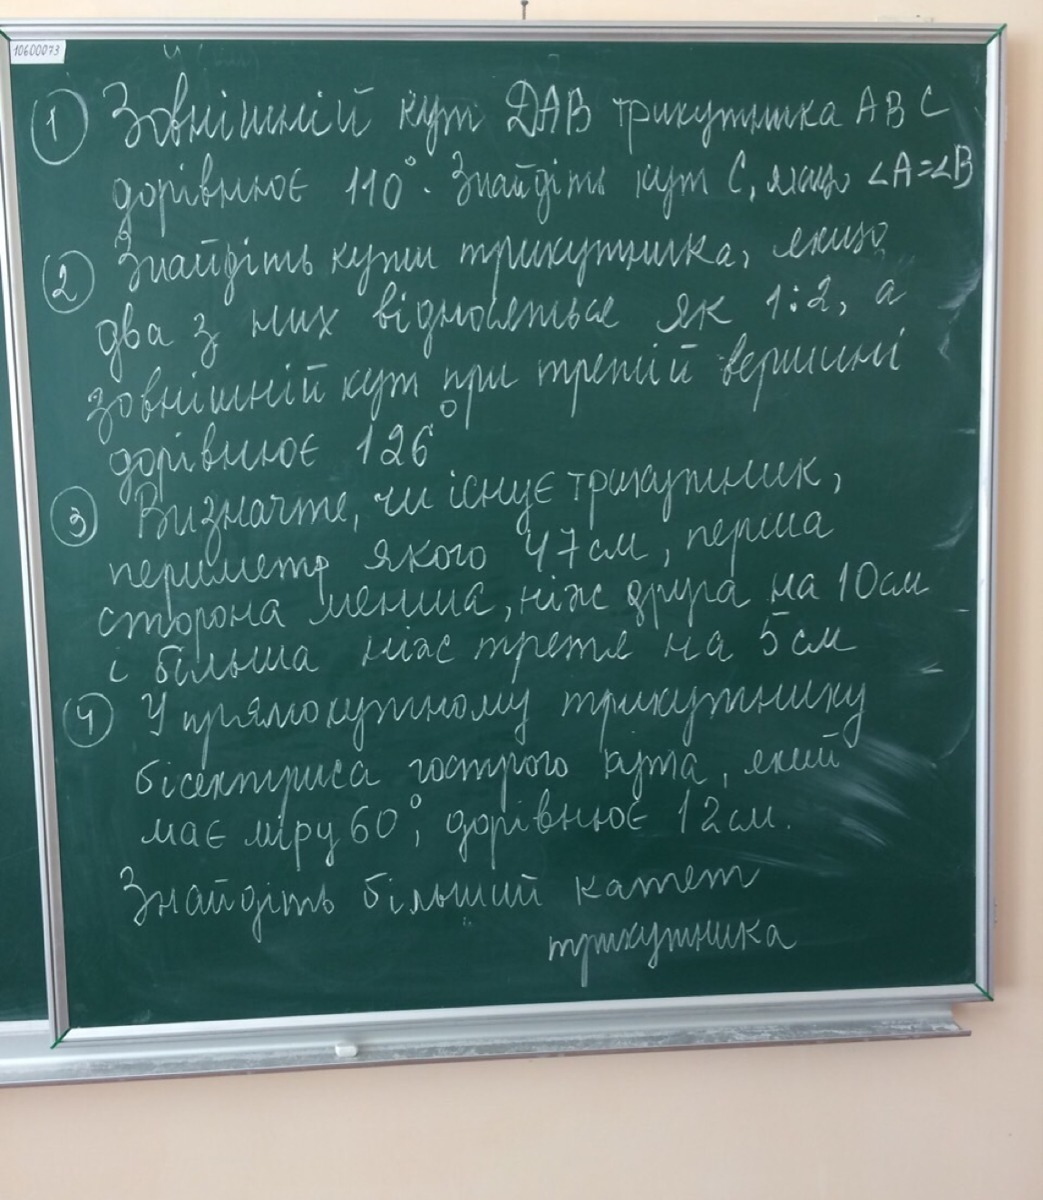 10600073
① Зовнішній кут DАВ трикутника АВС
дорівнює 110°. Знайдіть кут С, якщо ∠А=∠В
② Знайдіть кути трикутника, якщо
два з них відносяться як 1:2, а
зовнішній кут при третій вершині
дорівнює 126°
③ Визначте, чи існує трикутник,
периметр якого 47см, перша
сторона менша, ніж друга на 10см
і більша ніж третя на 5см
④ У прямокутному трикутнику
бісектриса гострого кута, який
має міру 60°, дорівнює 12см.
Знайдіть більший катет
трикутника